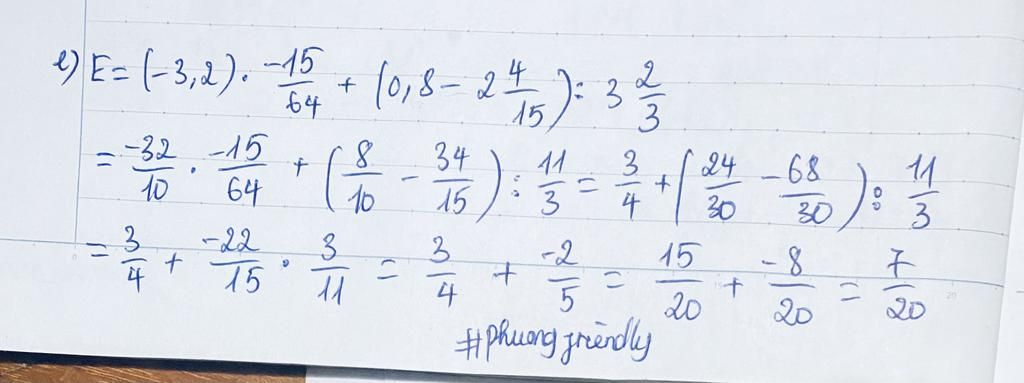 e) E = (-3,2) . -15/64 + (0,8 - 2 4/15) : 3 2/3
= -32/10 . -15/64 + (8/10 - 34/15) : 11/3 = 3/4 + (24/30 - 68/30) : 11/3
= 3/4 + -22/15 . 3/11 = 3/4 + -2/5 = 15/20 + -8/20 = 7/20
#phuongfriendly